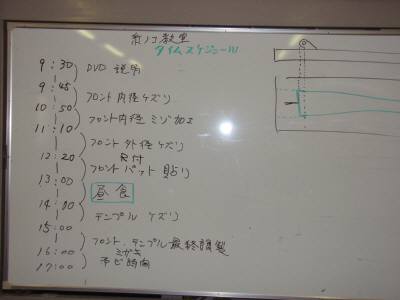 糸ノコ教室
タイムスケジュール
9:30
DVD 説明
9:45
フロント内径ケズリ
10:50
フロント内径ミゾ加工
11:10
フロント外径ケズリ
12:20
フロント パット 貼り
13:00
昼食
14:00
テンプル ケズリ
15:00
フロント、テンプル最終調製
ミガキ
16:00
予ビ時間
17:00